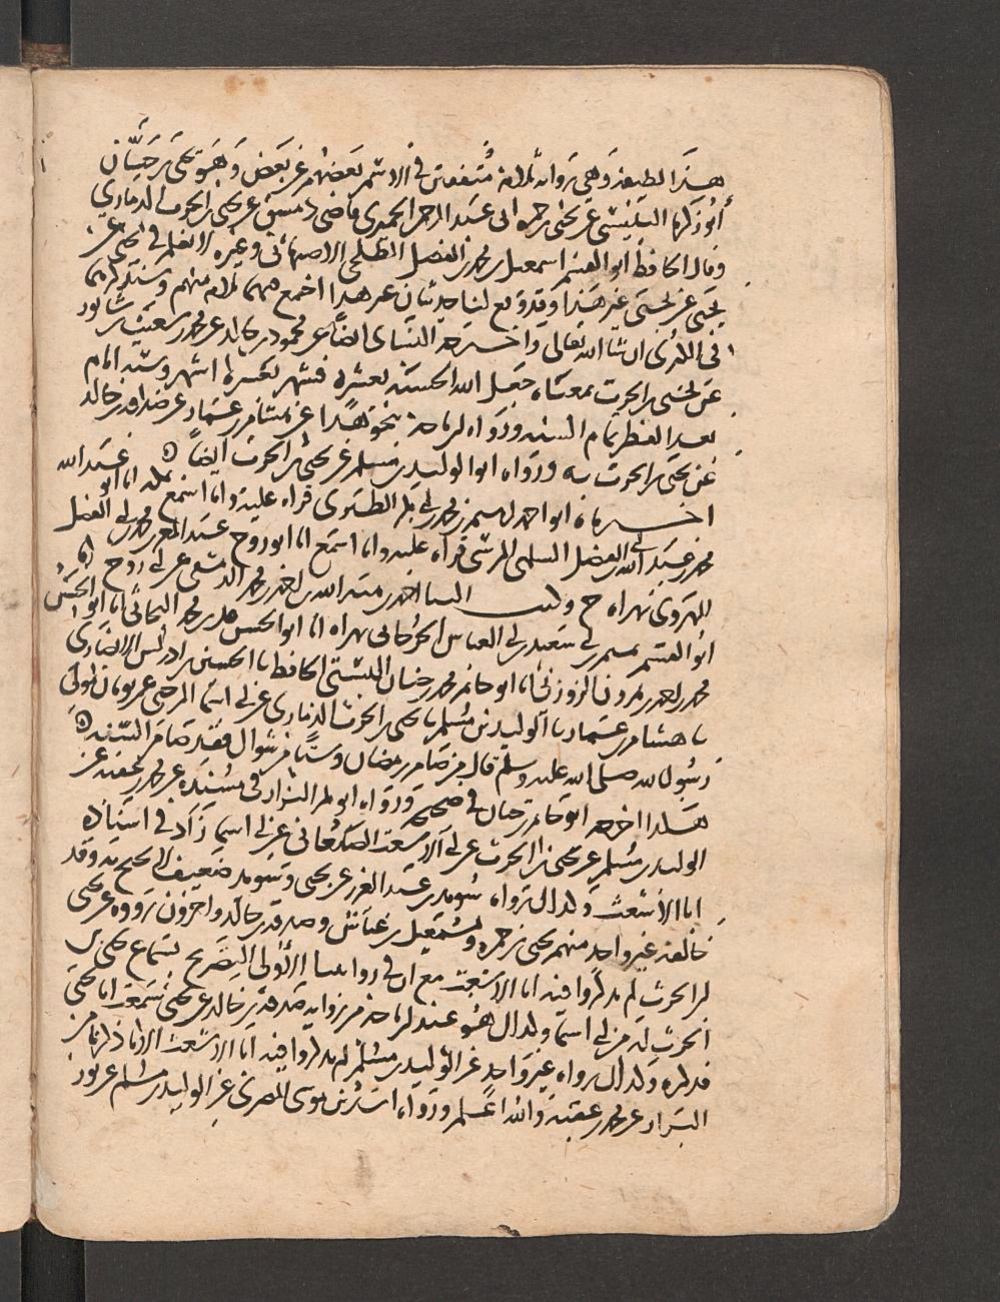 هذا الطبعه وهي رواية ثلاثة متفقين في الاسم بعضهم عن بعض وهو يحيى بن حسان
أبو زكريا التنيسي عن يحيى بن حمزه ابي عبد الرحمن الحميري قاضي دمشق عن يحيى بن الحرث الذماري
وقال الحافظ ابو القسم اسمعيل بن محمد بن الفضل الطلحي الاصبهاني وغيره لا نعلم في يحيى عن
يحيى عن يحيى غير هذا وقد وقع لنا حديثان غير هذا اجتمع فيهما ثلاثة منهم وسنذكرهما
في الذكرى ان شا الله تعالى واخرجه النساى ايضا عن محمود بن خالد عن محمد بن شعيب بن شابور
عن يحيى بن الحرث بمعناه جعل الله الحسنه بعشره فشهر بعشرة اشهر وستة ايام
بعد الفطر تمام السنه ورواه ابن ماجة بنحو هذا عن هشام بن عمار عن صدقه بن خالد
عن يحيى بن الحرث به ورواه ابو الوليد بن مسلم عن يحيى بن الحرث ايضا
اخبرناه ابو احمد ابرهيم بن محمد بن ابي بكر الطبري قراه عليه وانا اسمع بمكه انا ابو عبد الله
محمد بن عبد الله بن ابي الفضل السلمي المرسي قراه عليه وانا اسمع انا ابو روح عبد المعز بن محمد بن ابي الفضل
الهروي بهراه ح وكتب الينا احمد بن هبة الله بن احمد بن محمد الدمشقي عن ابي روح انا
ابو القسم تميم بن ابي سعيد بن ابي العباس الجرجاني بهراه انا ابو الحسن علي بن محمد البحاثي انا ابو الحسن
محمد بن احمد بن هرون الزوزني انا ابو حاتم محمد بن حبان البستي الحافظ نا الحسين بن ادريس الانصاري
نا هشام بن عمار نا الوليد بن مسلم نا يحيى بن الحرث الذماري عن ابي اسما الرحبي عن ثوبان مولى
رسول الله صلى الله عليه وسلم قال من صام رمضان وستا من شوال فقد صام السنه
هكذا اخرجه ابو حاتم بن حبان في صحيحه ورواه ابو بكر البزار في مسنده عن محمد بن عقبه عن
الوليد بن مسلم عن يحيى بن الحرث عن ابي الاشعث الصنعاني عن ابي اسما زاد في اسناده
ابا الاشعث وكذلك رواه سويد بن عبد العزيز عن يحيى وسويد ضعيف لا يحتج به وقد
خالفه غير واحد منهم يحيى بن حمزه واسمعيل بن عياش وصدقه بن خالد واخرون رووه عن يحيى
بن الحرث لم يذكروا فيه ابا الاشعث مع ان في روايتنا الاولى التصريح بسماع يحيى بن
الحرث له من ابي اسما وكذلك هو عند ابن ماجة من رواية صدقه بن خالد عن يحيى سمعت ابا اسما
فذكره وكذلك رواه غير واحد عن الوليد بن مسلم لم يذكروا فيه ابا الاشعث الا ما ذكرنا من
البزار عن محمد بن عقبه والله اعلم ورواه اسد بن موسى المصري عن الوليد بن مسلم عن ثور